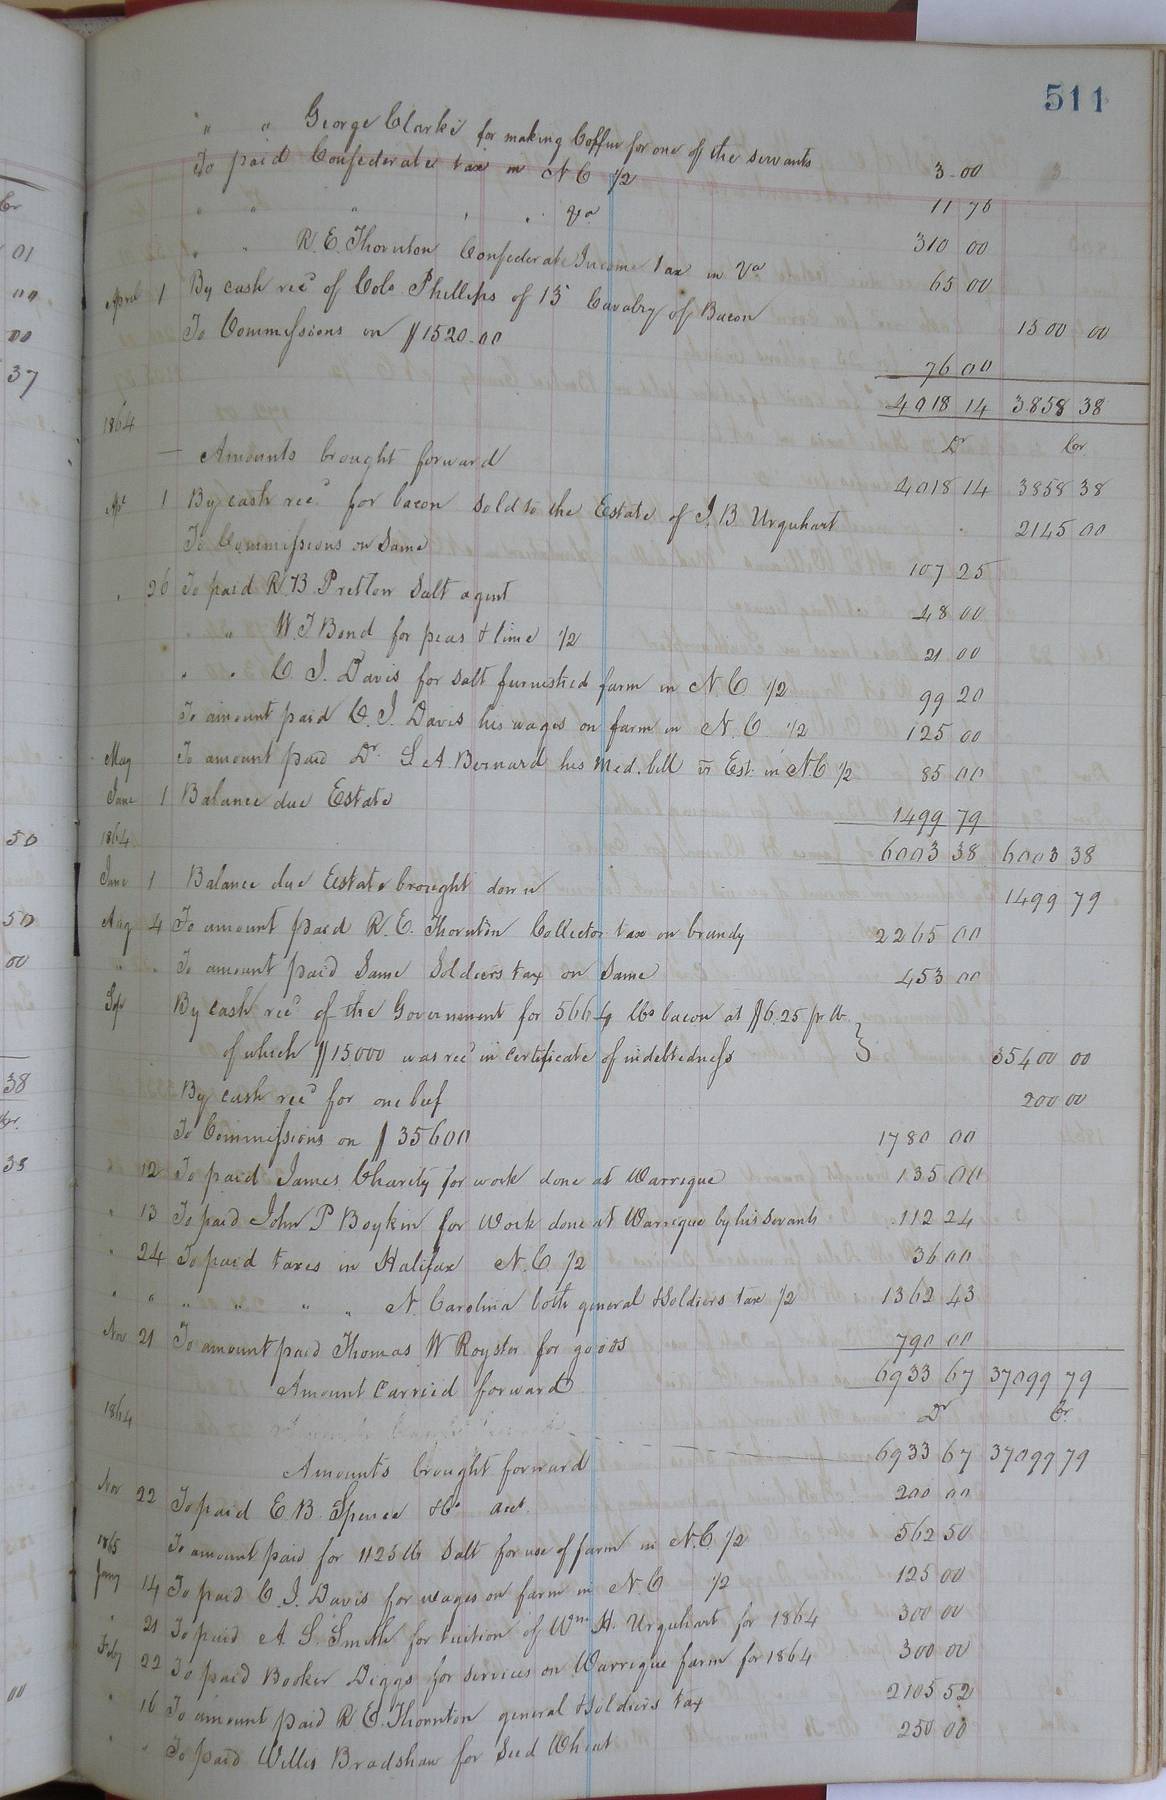 511
" " George Clarke for making Coffin for one of the servants 3.00
To paid Confederate tax in N C 1/2 11 76
" " " " " Va 310 00
" " R. E. Thornton Confederate Income tax in Va 65 00
April 1 By cash recd of Colo Phillips of 15 Cavalry of Bacon 1500 00
To Commissions on $1520.00 76 00
4018 14 3858 38
1864 Dr Cr
Amounts brought forward 4018 14 3858 38
Apl 1 By cash recd for bacon sold to the Estate of J. B. Urquhart 2145 00
To Commissions on Same 107 25
" 26 To paid R. B. Pretlow Salt agent 48 00
" " W. J Bond for peas & lime 1/2 21 00
" " C. J. Davis for salt furnished farm in N. C. 1/2 99 20
To amount paid C. J. Davis his wages on farm in N. C. 1/2 125 00
May To amount paid Dr. S. A. Bernard his med. bill vs Est. in N C 1/2 85 00
June 1 Balance due Estate 1499 79
6003 38 6003 38
1864
June 1 Balance due Estate brought down 1499 79
Aug 4 To amount paid R. E. Thornton Collector tax on brandy 2265 00
" " To amount paid Same Soldiers tax on Same 453 00
Sep By cash recd of the Government for 5664 lbs bacon at $6.25 pr lb
of which $15000 was recd in certificate of indebtedness 35400 00
By cash recd for one beef 200 00
To Commissions on $35600 1780 00
12 To paid James Charity for work done at Warrique 135 00
" 13 To paid John P Boykin for Work done at Warrique by his Servants 112 24
" 24 To paid taxes in Halifax N. C 1/2 36 00
" " " " " " N. Carolina both general & Soldiers tax 1/2 1362 43
Nov 21 To amount paid Thomas W Royster for goods 790 00
Amount Carried forward 6933 67 37099 79
1864 Dr Cr
Amounts brought forward 6933 67 37099 79
Nov 22 To paid E. B. Spence & Co acct 200 00
To amount paid for 1125 lb Salt for use of farm in N. C. 1/2 562 50
1865
Jany 14 To paid C. J. Davis for wages on farm in N. C 1/2 125 00
" 21 To paid A. S. Smith for tuition of Wm H. Urquhart for 1864 300 00
Feby 22 To paid Booker Diggs for services on Warrique farm for 1864 300 00
" 16 To amount paid R E. Thornton general & Soldiers tax 2105 52
" " To paid Willis Bradshaw for Seed Wheat 250 00